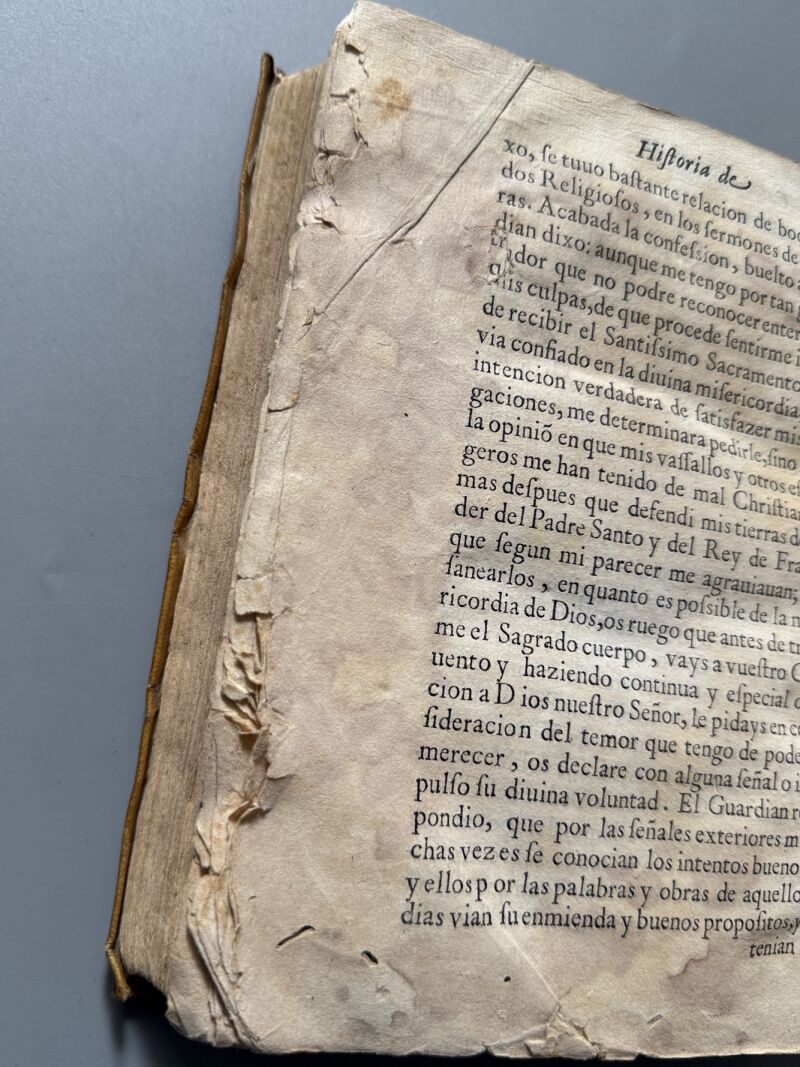 Hiſtoria de
xo, ſe tuuo baſtante relacion de boc
dos Religioſos, en los ſermones de
ras. Acabada la confeſsion, buelto a
dian dixo: aunque me tengo por tan g
dor que no podre reconocer enter
mis culpas, de que procede ſentirme i
de recibir el Santiſsimo Sacramento
via confiado en la diuina miſericordia
intencion verdadera de ſatisfazer mis
gaciones, me determinara pedirle, ſino
la opiniõ en que mis vaſſallos y otros eſ
geros me han tenido de mal Chriſtia
mas deſpues que defendi mis tierras d
der del Padre Santo y del Rey de Fra
que ſegun mi parecer me agrauiauan;
ſanearlos, en quanto es poſsible de la m
ricordia de Dios, os ruego que antes de tr
me el Sagrado cuerpo, vays a vueſtro C
uento y haziendo continua y eſpecial
cion a D ios nueſtro Señor, le pidays en c
ſideracion del temor que tengo de pode
merecer, os declare con alguna ſeñal o i
pulſo ſu diuina voluntad. El Guardian r
pondio, que por las ſeñales exteriores m
chas vezes ſe conocian los intentos bueno
y ellos p or las palabras y obras de aquello
dias vian ſu enmienda y buenos propoſitos, y
tenian